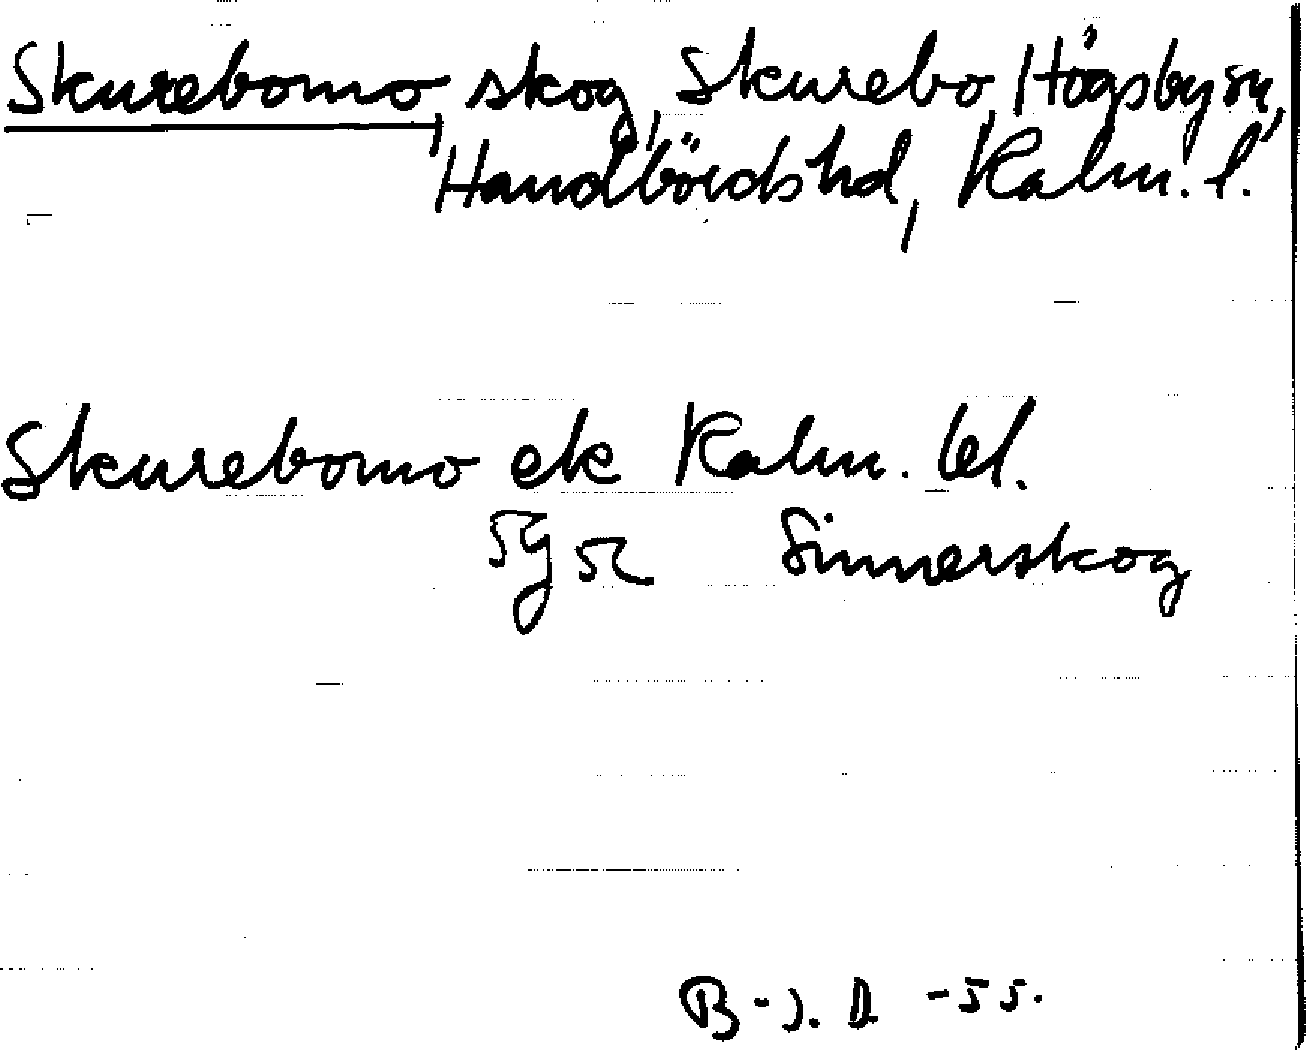 Skurebomo, skog, Skurebo, Högsby sn,
Handbörds hd, Kalm. l.
Skurebomo ek Kalm. bl.
5g5c Sinnerskog
B-J. D -55.